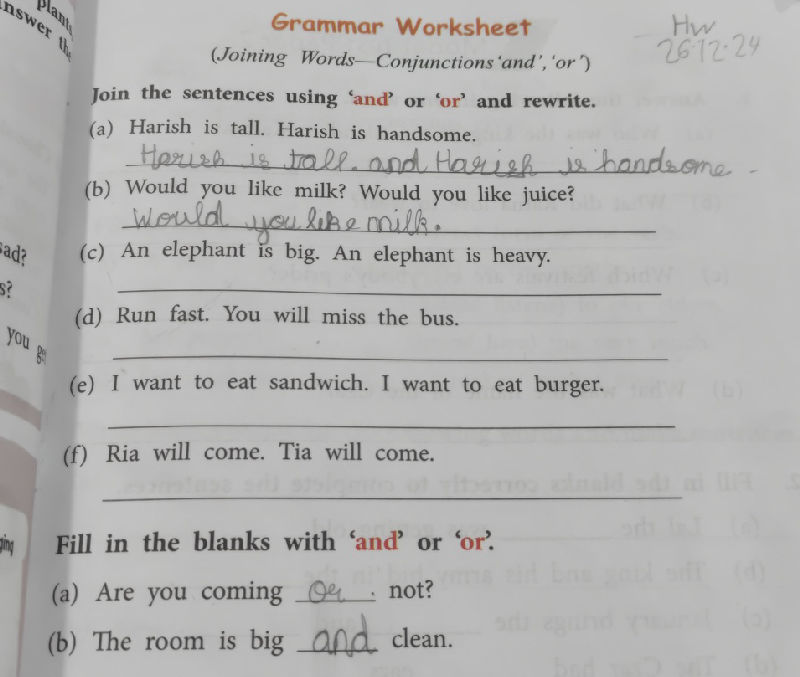 Plants
nswer the
Grammar Worksheet
Hw
26-12-24
(Joining Words—Conjunctions 'and', 'or')
Join the sentences using 'and' or 'or' and rewrite.
(a) Harish is tall. Harish is handsome.
Harish is tall. and Harish is handsome.
(b) Would you like milk? Would you like juice?
Would you like milk.
(c) An elephant is big. An elephant is heavy.
ad?
s?
(d) Run fast. You will miss the bus.
you
(e) I want to eat sandwich. I want to eat burger.
(f) Ria will come. Tia will come.
Fill in the blanks with 'and' or 'or'.
(a) Are you coming or not?
(b) The room is big and clean.